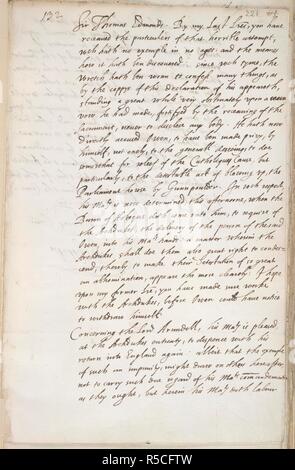 132
Sir Thomas Edmonds. By my last lres, you have
received the particulers of that horrible attempt,
wch hath no exemple in no ages: and the meanes
how it hath ben discovered. since wch tyme, the
wretch hath ben woon to confess many things, as
by the coppie of the declaration of his appeareth,
standing a great while very obstinately upon a
vow he had made, fortified by the receaving of the
Sacrament, never to disclose any body. He hath now
directly accused Owen, to have ben made privy, by
himself, not onely, to the generall designes to doe
somewhat for relief of the Catholiques cause, but
particularly, to the detestable act of blowing up the
Parliament house by Gunpowder. In wch respect,
his Maty is now determined this afternoone, when the
Baron of doth come unto them, to require of
the Archdukes, the delivery of the person of the said
Owen, into his Mats hands: a matter wherein the
Archdukes shall doe them selves great right to
, thereby to make their detestation of so great
an abhomination, appeare the more clearely. I hope
upon my former lre, you have made sure worke
with the Archdukes, before Owen could have notice
to withdraw himself.
Concerning the Lord Arundell, his Maty is pleased
at the Archdukes entreaty, to dispence with his
return into England again: albeit that the exemple
of such an impunity, might dure on others hereafter
not to carry such due regard of his Mats commandements
as they ought, but herein his Maty hath
alamy
Image ID: R5CFTW
www.alamy.com